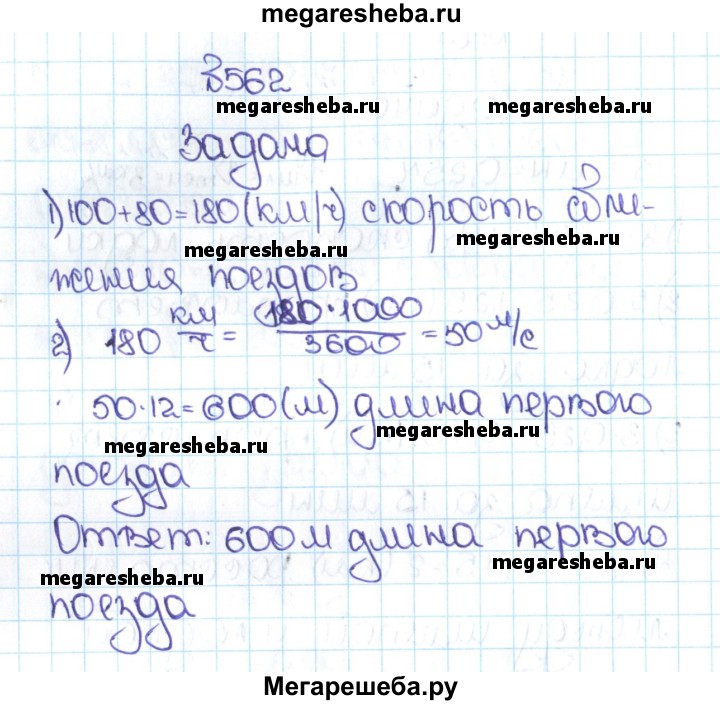 megaresheba.ru
№562
megaresheba.ru megaresheba.ru
Задача
1) 100+80=180(км/ч) скорость сбли-
megaresheba.ru megaresheba.ru
жения поездов
2) 180 км/ч = 180·1000/3600 = 50 м/с
50·12=600(м) длина первого
megaresheba.ru megaresheba.ru
поезда
Ответ: 600 м длина первого
megaresheba.ru megaresheba.ru
поезда
Мегарешеба.ру